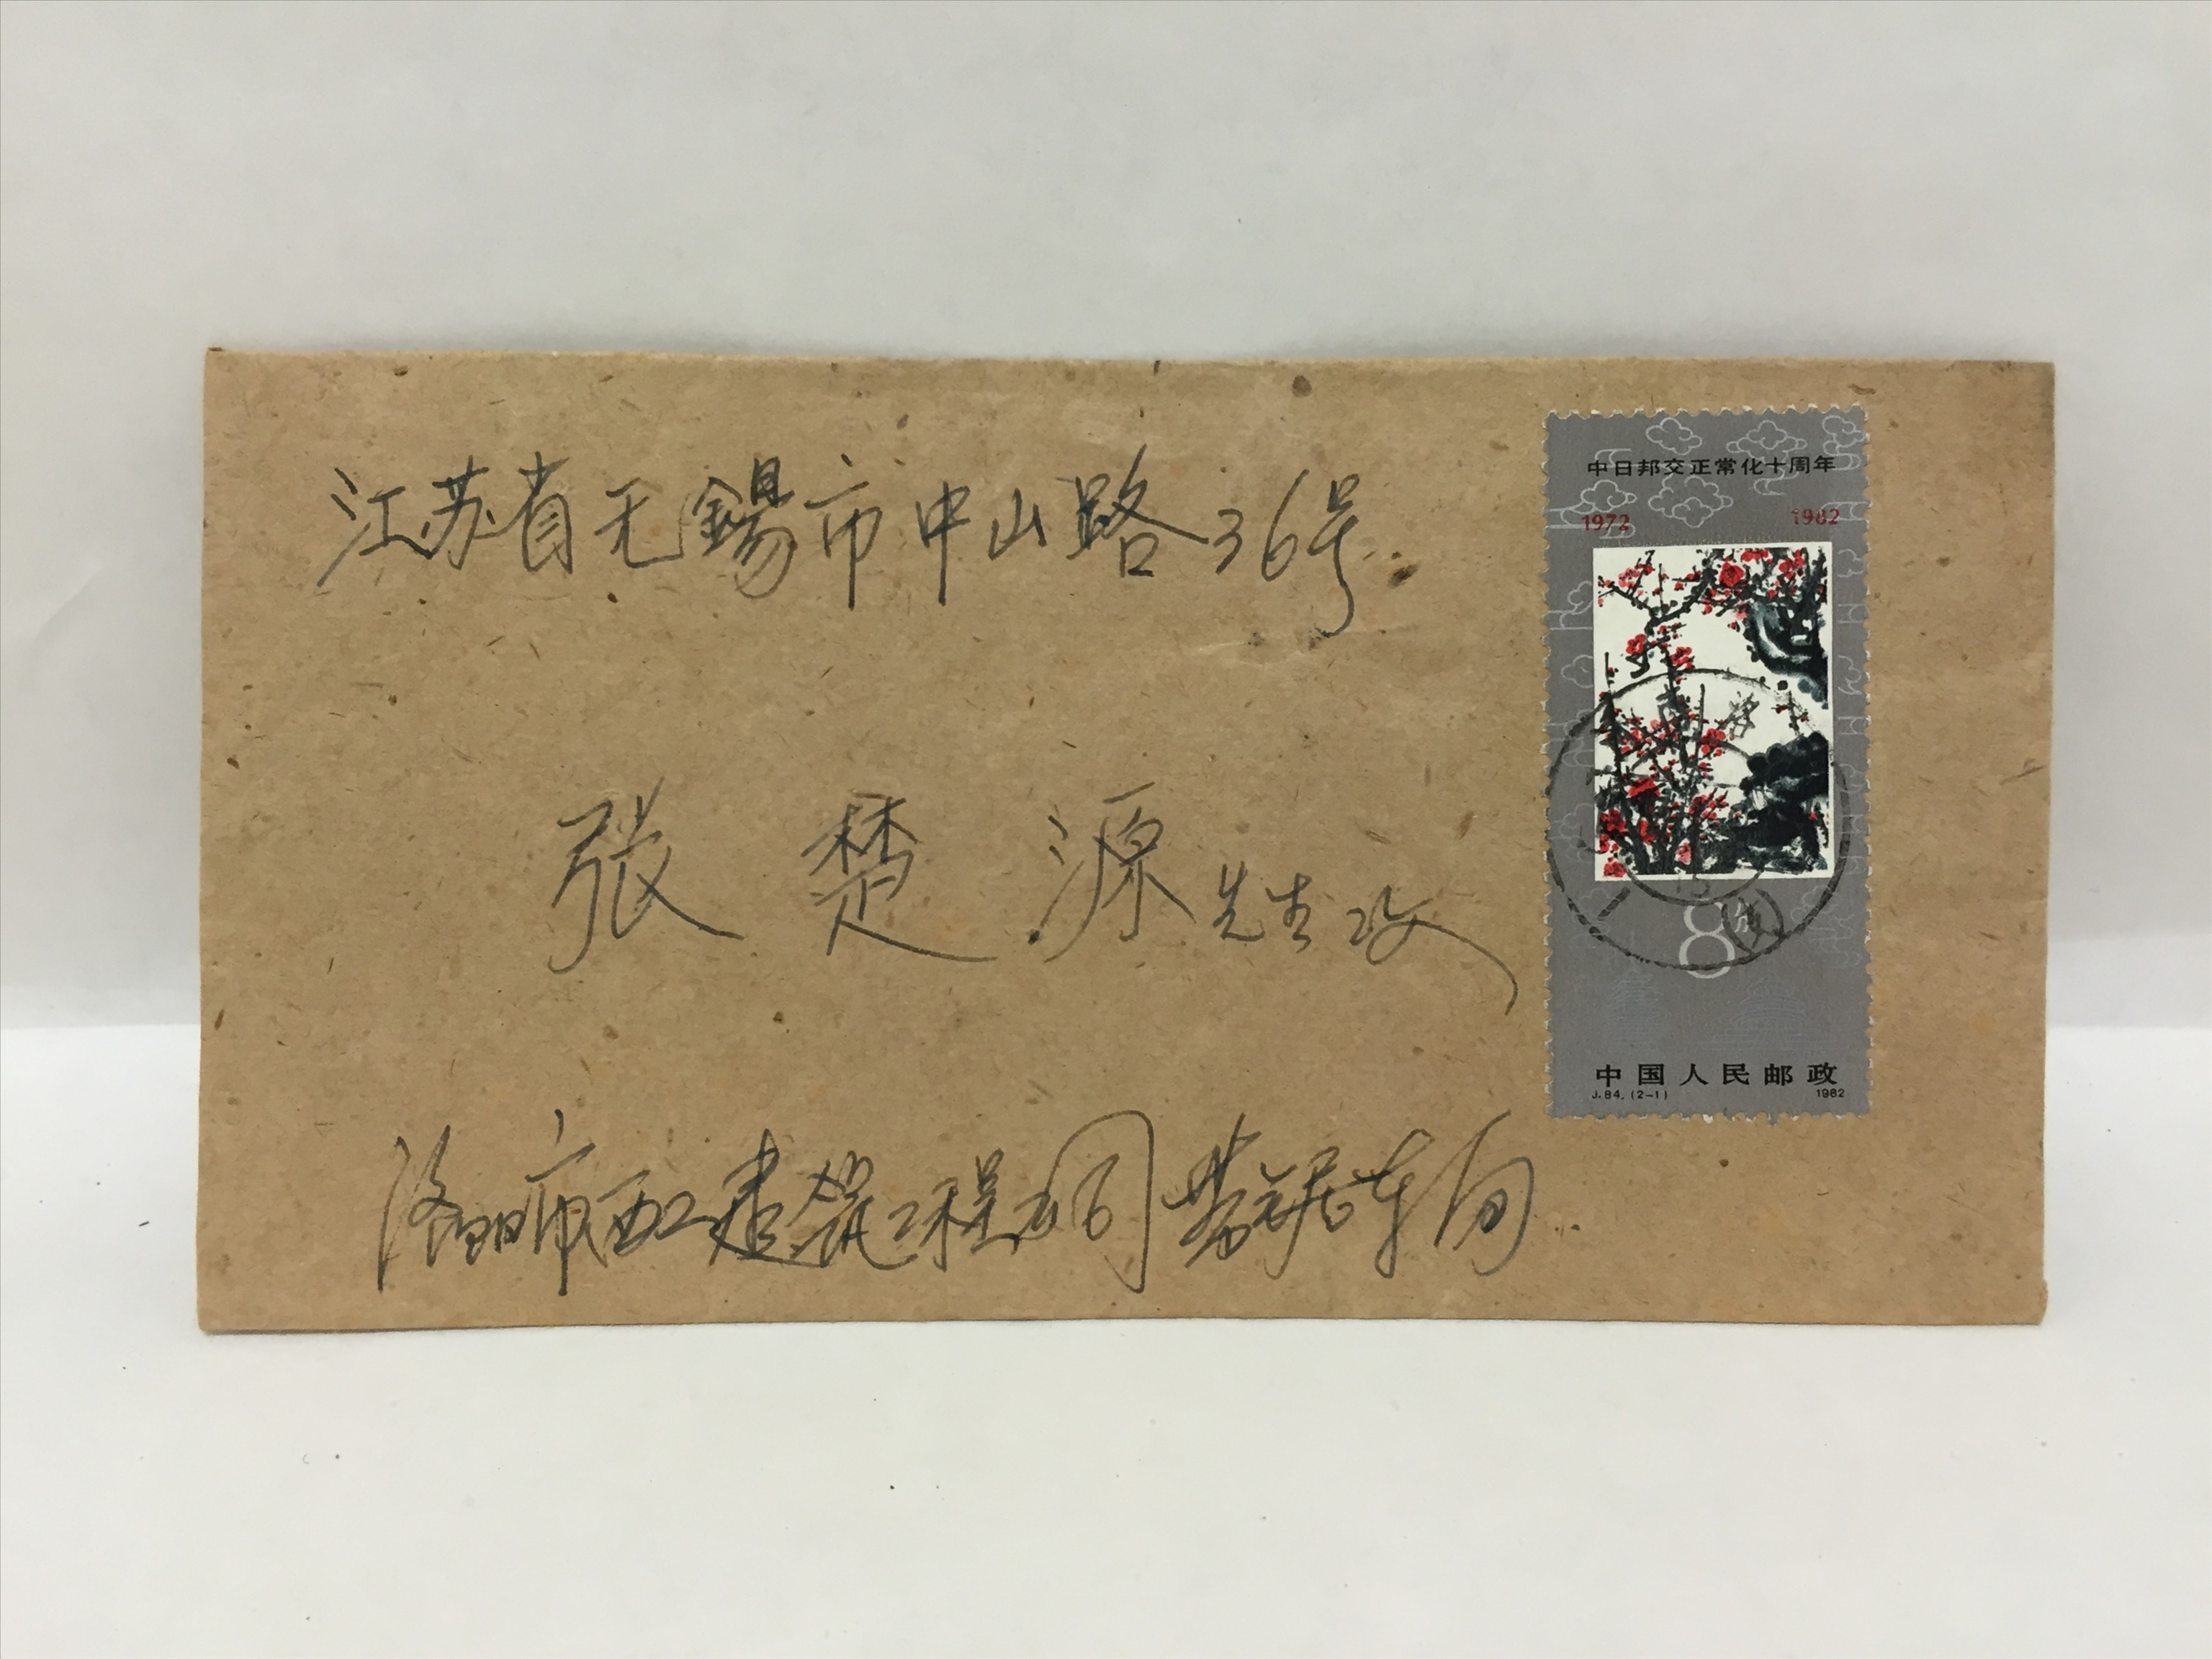 江苏省无錫市中山路36号
张楚源先生收
洛阳市西工建筑工程公司
中日邦交正常化十周年
1972 1982
8分
中国人民邮政
J.84.(2-1) 1982